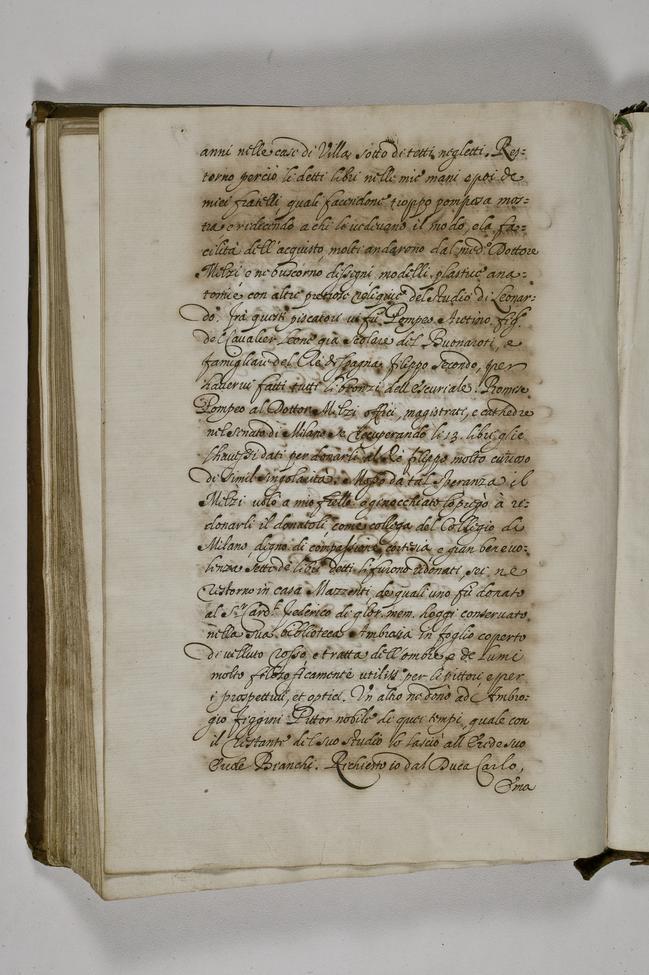 anni nelle case di Villa sotto de tetti negletti. Res=
torno perciò li detti libri nelle mie mani e poi de
miei fratelli quali facendone troppo pomposa mos=
tra e ridicendo a chi le vedevano il modo, e la fa=
cilità dell'acquisto molti andarono dal med.º Dottore
Melzi e ne buscorno dissegni, modelli, plastice ana=
tomie con altre pretiose reliquie del studio di Leonar=
do. frà questi piscatori vi fu Pompeo Aretino figl.
del Cavalier Leone già Scolare del Buonaroti, e
famigliare del Rè di Spagna filippo secondo, per
havervi fatti tutti li bronzi dell'escuriale. Romise
Pompeo al Dottor Melzi offici, magistrati, e cathedre
nel senato di Milano se recuperando li 13. libri glie
li havesse dati per donarli al Rè filippo molto curioso
di simil singolarità: Mosso da tal speranza il
Melzi volò a mio frello e ginocchiato lo pregò à ri=
donarli il donatoli, come collega del Collegio de
Milano, degno di compassione cortesia e gran benevo=
lenza Sette de libri detti li furono ridonati, sei ne
restorno in casa Mazzenti de quali uno fù donato
al S.r Card.e federico di glor. mem. hoggi conservato
nella sua biblioteca Ambrosia in foglio coperto
di velluto rosso e tratta dell'ombre e de lumi
molto filosoficamente utilissi per li pittori e per
i prospettivi, et optici. Un altro ne donò ad Ambro=
gio figgini Pittor nobile di quei tempi, quale con
il restante del suo studio lo lasciò all'erede suo
Ercole Bianchi. Richiesto io dal Duca Carlo,